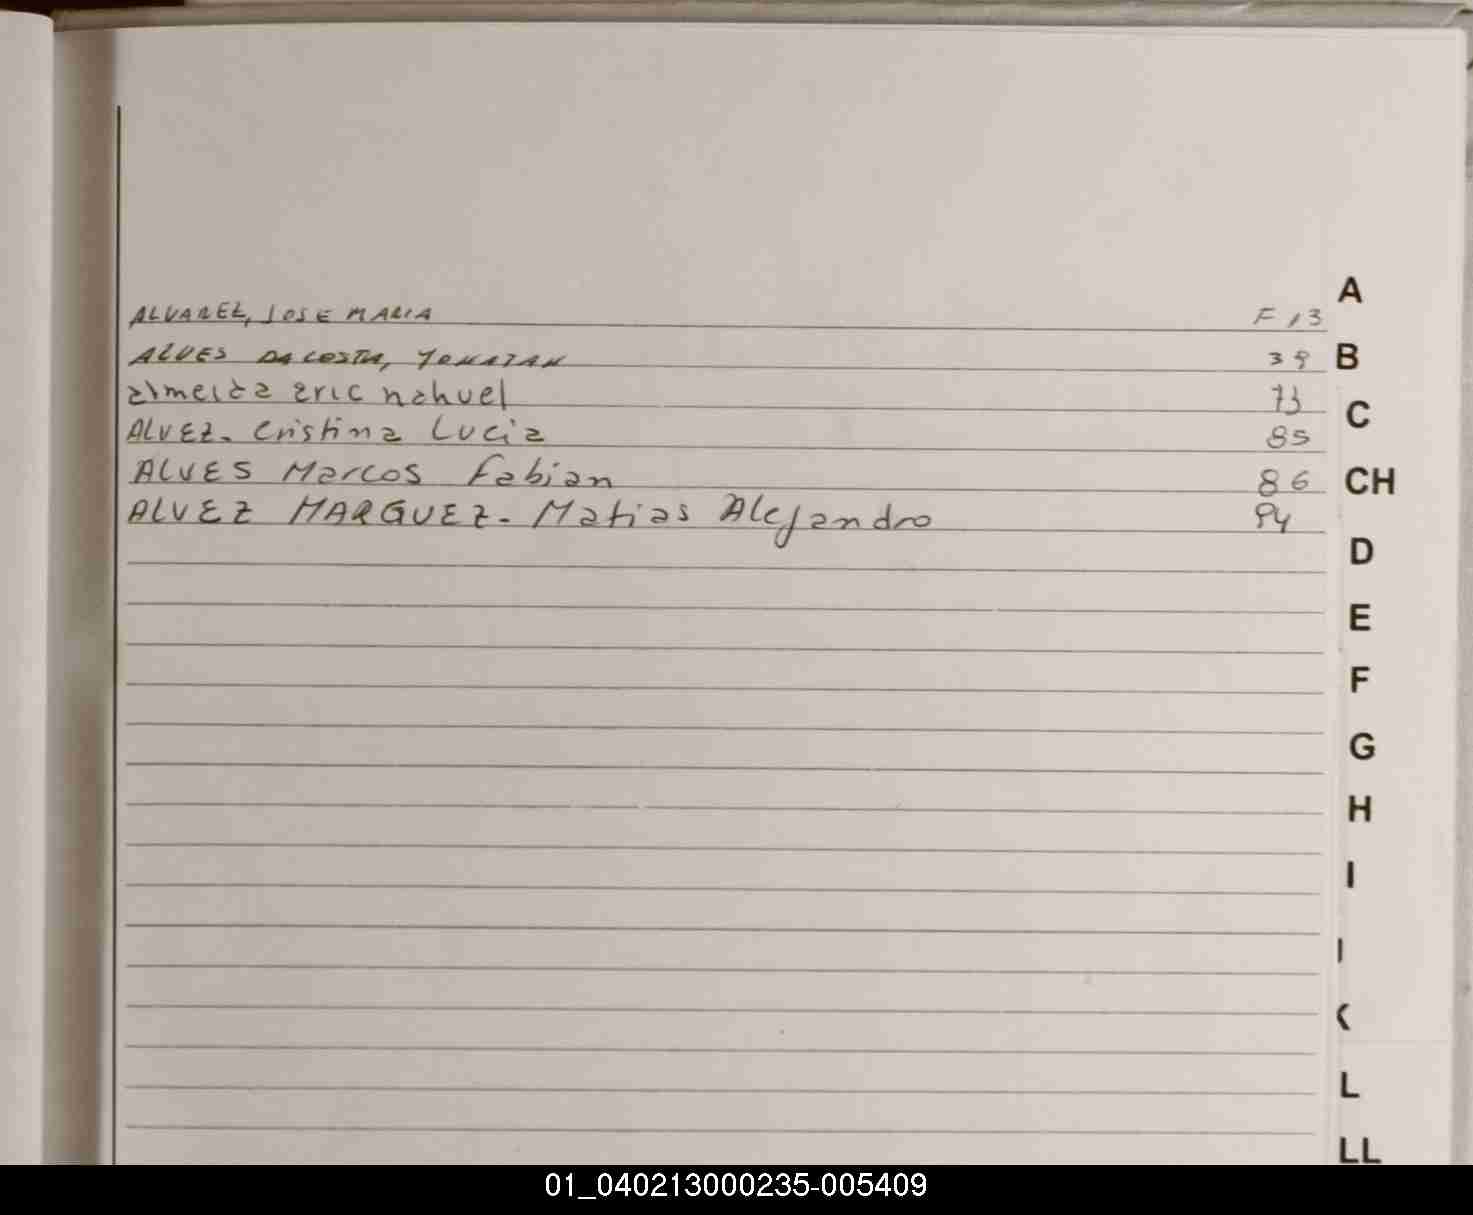 ALVAREZ, JOSE MARIA F 13
ALVES DA COSTA, YONATAN 39
almeida eric nahuel 73
ALVEZ. Cristina Lucia 85
ALVES Marcos Fabian 86
ALVEZ MARGUEZ. Matias Alejandro 94
A
B
C
CH
D
E
F
G
H
I
K
L
LL
01_040213000235-005409